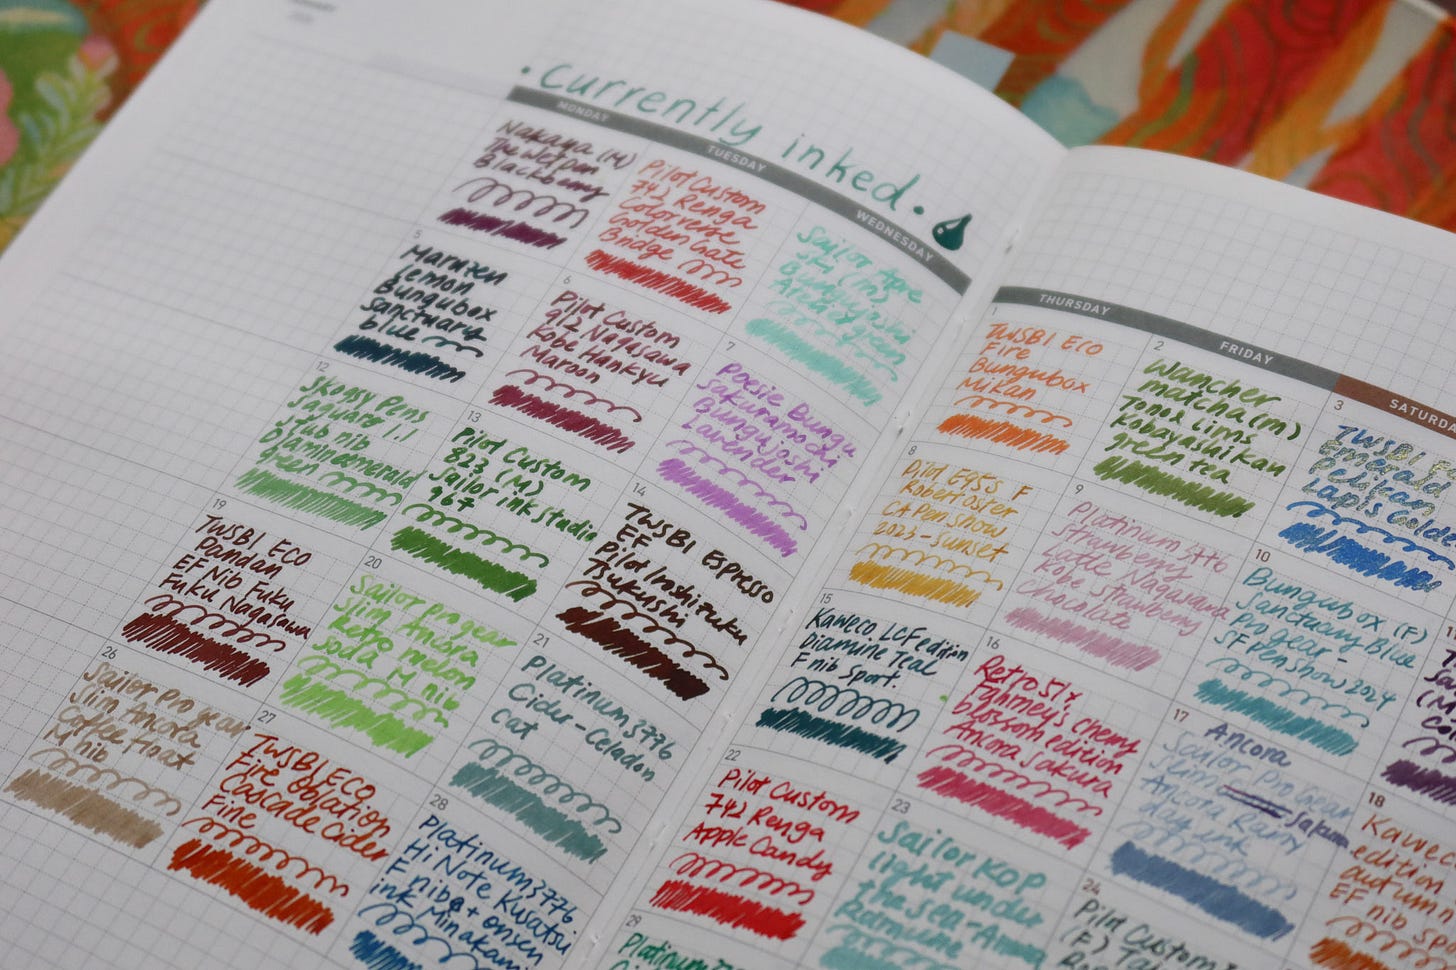 • Currently inked •
MONDAY
TUESDAY
WEDNESDAY
Nakaya (M)
The Wet Pen
Blackberry
Pilot Custom
742 Renga
Colorverse
Golden Gate
Bridge
Sailor
(m)
green
5
Maruzen
Lemon
Bungubox
Sanctuary
blue
6
Pilot Custom
912 Nagasawa
Kobe Hankyu
Maroon
7
Poesie Bungu
Sakuramochi
Bungujoshi
Lavender
12
Skogsy Pens
Jaguar 1.1
Stub nib
Diamine emerald
green
13
Pilot Custom
823 (M)
Sailor ink studio
967
14
TWSBI Espresso
EF
Pilot Iroshizuku
Tsukushi
19
TWSBI ECO
Pandan
EF Nib Fuku
Fuku Nagasawa
20
Sailor Pro gear
Slim Ancora
melon
soda M nib
21
Platinum 3776
Cider - Celadon
Cat
26
Sailor Pro gear
Slim Ancora
Coffee Float
M nib
27
TWSBI ECO
Fire Oblation
Cascade Cider
Fine
28
Platinum 3776
Hi Note Kusatsu
F nib + onsen
ink Minakami
THURSDAY
FRIDAY
SATURDA
1
TWSBI ECO
Fire
Bungubox
Mikan
2
Wancher
matcha (m)
Tono & Lims
Kobayasaikan
green tea
3
TWSBI
Emerald
Pelikan
Lapis
8
Pilot E95S F
Robert Oster
CA Pen Show
2023 - Sunset
9
Platinum 3776
Strawberry
Latte Nagasawa
Kobe Strawberry
Chocolate
10
Bungubox (F)
Sanctuary Blue
Pro gear -
SF Pen Show 2024
15
Kaweco LCF edition
Diamine Teal
F nib Sport.
16
Retro 51 x
Fahmey's Cherry
blossom edition
Ancora Sakura
17
Ancora
Sailor Pro Gear
Slim
Ancora Rainy
day ink
18
Kaweco
edition
autumn
EF nib
22
Pilot Custom
742 Renga
Apple Candy
23
Sailor KOP
light under
the sea -
24
Pilot Custom
(F)
29
Platinum